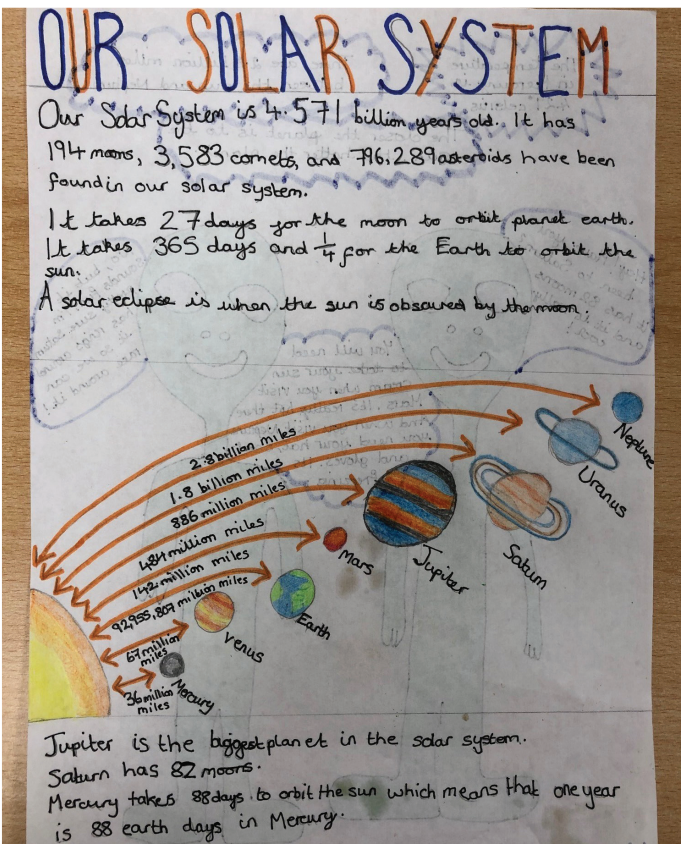 OUR SOLAR SYSTEM
Our Solar System is 4.571 billion years old. It has
194 moons, 3,583 comets, and 796,289 asteroids have been
found in our solar system.
It takes 27 days for the moon to orbit planet earth.
It takes 365 days and 1/4 for the Earth to orbit the
sun.
A solar eclipse is when the sun is obscured by the moon.
2.8 billion miles
Neptune
1.8 billion miles
Uranus
886 million miles
Saturn
484 million miles
Jupiter
142 million miles
Mars
92955,807 million miles
Earth
67 million
miles
Venus
36 million
miles
Mercury
Jupiter is the biggest planet in the solar system.
Saturn has 82 moons.
Mercury takes 88 days to orbit the sun which means that one year
is 88 earth days in Mercury.